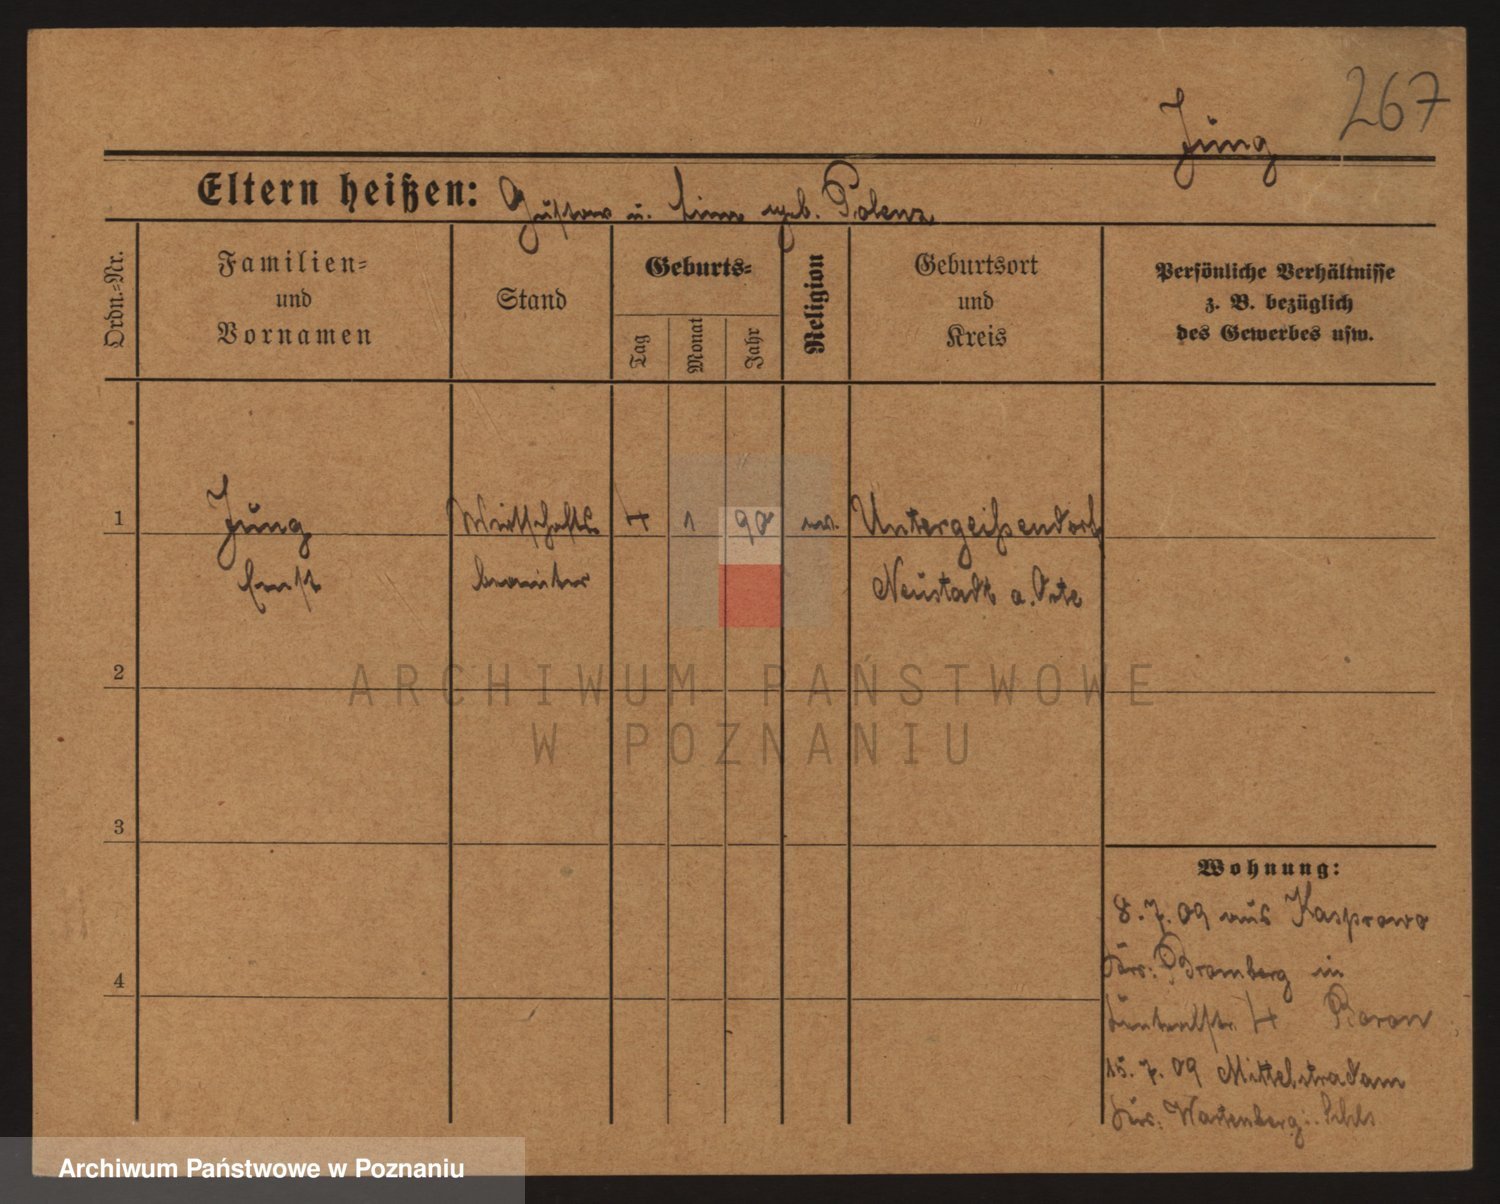 267
Jung
Eltern heißen: Gustav u. geb. Polenz
Ordn.-Nr.
Familien-
und
Vornamen
Stand
Geburts-
Tag
Monat
Jahr
Religion
Geburtsort
und
Kreis
Persönliche Verhältnisse
z. B. bezüglich
des Gewerbes usw.
1
Jung
Ernst
Wirtschafts
beamter
4
1
90
ev.
Untergeißendorf
Neustadt a. Orte
2
ARCHIWUM PAŃSTWOWE
W POZNANIU
3
Wohnung:
8. 7. 09 aus Kasprowo
Krs. Bromberg in
4
4 Baron
15. 7. 09 Mittelstradam
Krs. Wartenberg. Schls
Archiwum Państwowe w Poznaniu